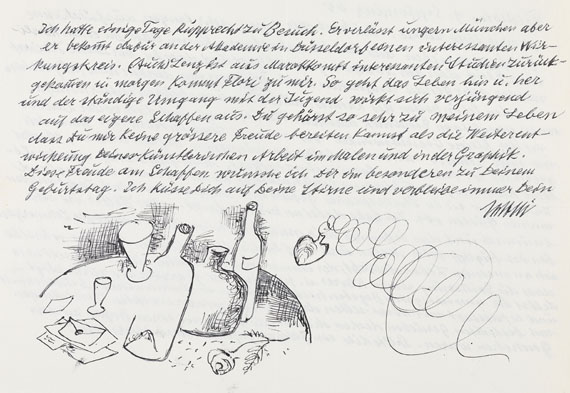 Ich hatte einige Tage Rupprecht zu Besuch. Er verlässt ungern München aber
er bekomt dafür an der Akademie in Düsseldorf einen interessanten Wir-
kungskreis. (Auch) Lenzko aus Marokko mit interessanten Studien zurück-
gekomen u morgen kommt Flori zu mir. So geht das Leben hin u. her
und der ständige Umgang mit der Jugend wirkt sich verjüngend
auf das eigene Schaffen aus. Du gehörst so sehr zu meinem Leben
dass Du mir keine grössere Freude bereiten kannst als die Weiterent-
wickelung Deiner künstlerischen Arbeit im Malen und in der Graphik.
Diese Freude am Schaffen wünsche ich Dir im besonderen zu Deinem
Geburtstag. Ich küsse Dich auf Deine Stirne und verbleibe immer Dein